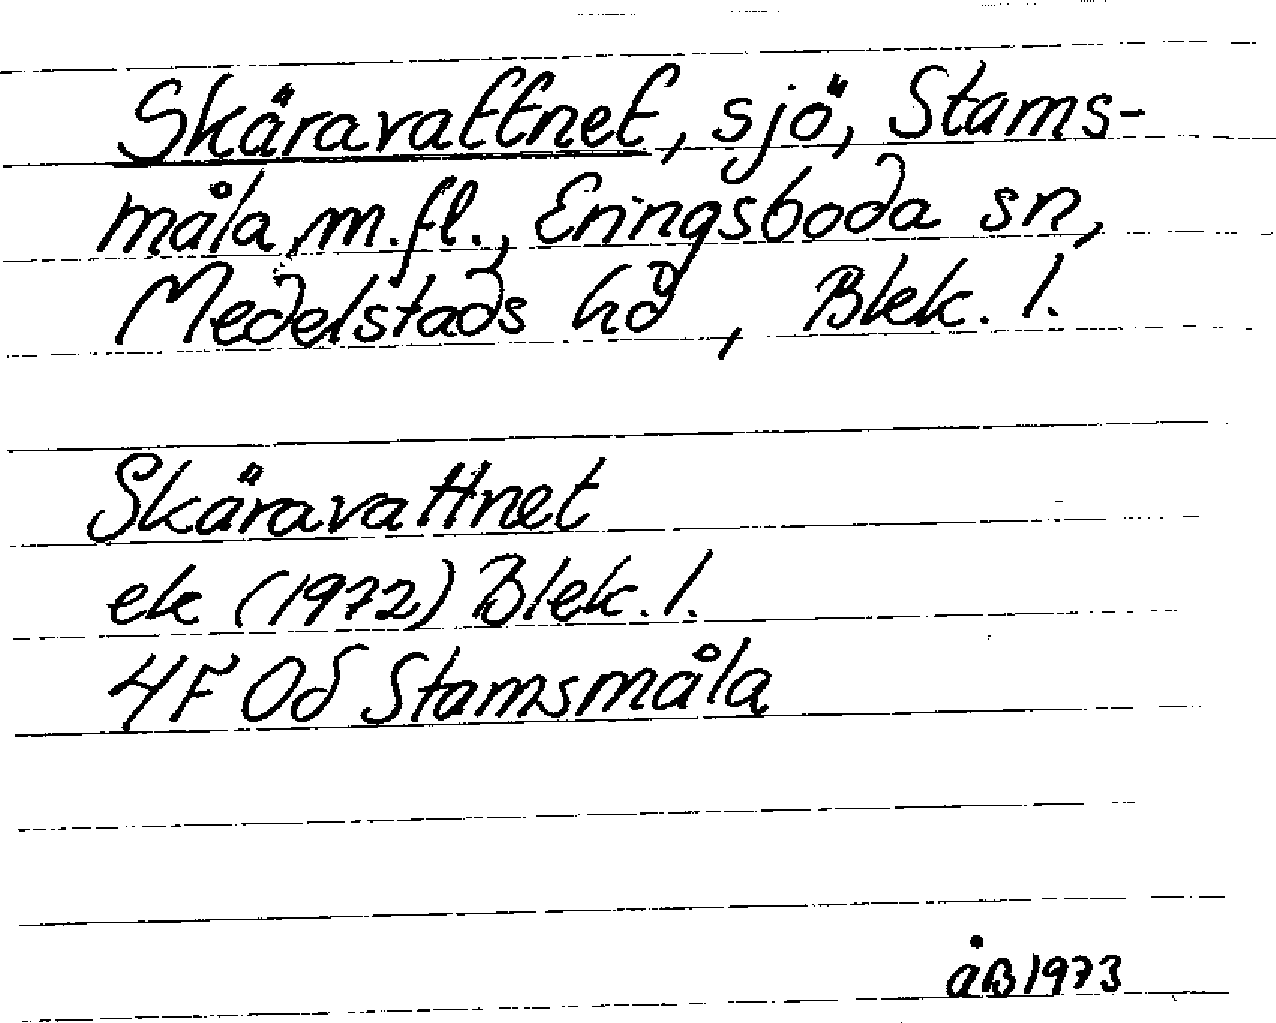 Skäravattnet, sjö, Stams-
måla m.fl., Eringsboda sn,
Medelstads hd, Blek. l.
Skäravattnet
ek (1972) Blek. l.
4F 0d Stamsmåla
åB 1973